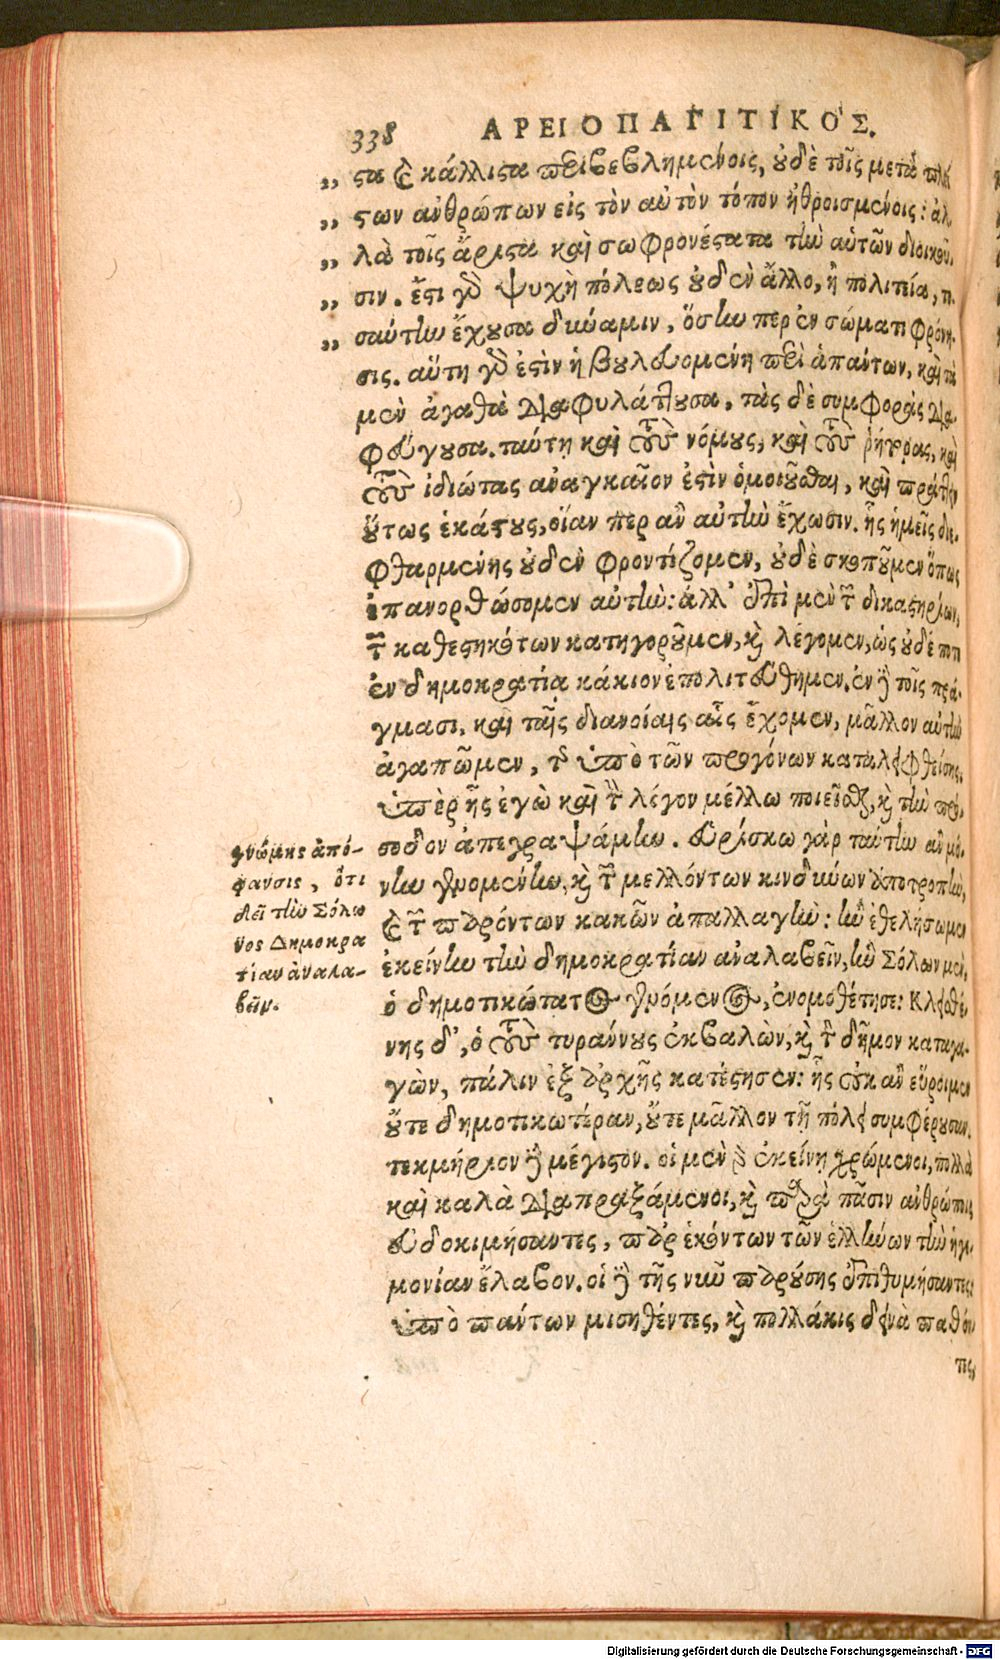 338 ΑΡΕΙΟΠΑΓΙΤΙΚΟΣ.
„ στα καὶ κάλλιστα περιβεβλημένοις, οὐδὲ τοῖς μετὰ πλεί
„ στων ἀνθρώπων εἰς τὸν αὐτὸν τόπον ἠθροισμένοις: ἀλ
„ λὰ τοῖς ἄριστα καὶ σωφρονέστατα τὴν αὑτῶν διοικοῦ
„ σιν. ἔστι γὰρ ψυχὴ πόλεως οὐδὲν ἄλλο, ἢ πολιτεία, το
„ σαύτην ἔχουσα δύναμιν, ὅσην περ ἐν σώματι φρόνη
σις. αὕτη γάρ ἐστιν ἡ βουλευομένη περὶ ἁπάντων, καὶ τὰ
μὲν ἀγαθὰ διαφυλάττουσα, τὰς δὲ συμφορὰς δια
φεύγουσα. ταύτῃ καὶ τοὺς νόμους, καὶ τοὺς ῥήτορας, καὶ
τοὺς ἰδιώτας ἀναγκαῖόν ἐστιν ὁμοιοῦσθαι, καὶ πράττειν
οὕτως ἑκάστους, οἵαν περ ἂν αὐτὴν ἔχωσιν. ἧς ἡμεῖς διε
φθαρμένης οὐδὲν φροντίζομεν, οὐδὲ σκοποῦμεν ὅπως
ἐπανορθώσομεν αὐτὴν: ἀλλ' ἐπὶ μὲν τῶν δικαστηρίων,
τῶν καθεστηκότων κατηγοροῦμεν, καὶ λέγομεν, ὡς οὐδέποτ'
ἐν δημοκρατίᾳ κάκιον ἐπολιτεύθημεν. ἐν δὲ τοῖς πρά
γμασι, καὶ ταῖς διανοίαις αἷς ἔχομεν, μᾶλλον αὐτὴν
ἀγαπῶμεν, τῆς ὑπὸ τῶν προγόνων καταλειφθείσης.
ὑπὲρ ἧς ἐγὼ καὶ τὸν λόγον μέλλω ποιεῖσθαι, καὶ τὴν πρό
σοδον ἀπεγραψάμην. εὑρίσκω γὰρ ταύτην ἂν μό
νην γενομένην, καὶ τῶν μελλόντων κινδύνων ἀποτροπὴν,
καὶ τῶν παρόντων κακῶν ἀπαλλαγὴν: ἢν ἐθελήσωμεν
ἐκείνην τὴν δημοκρατίαν ἀναλαβεῖν, ἣν Σόλων μὲν,
ὁ δημοτικώτατος γενόμενος, ἐνομοθέτησε: Κλεισθέ
νης δ', ὁ τοὺς τυράννους ἐκβαλὼν, καὶ τὸν δῆμον καταγα
γὼν, πάλιν ἐξ ἀρχῆς κατέστησεν: ἧς οὐκ ἂν εὕροιμεν
οὔτε δημοτικωτέραν, οὔτε μᾶλλον τῇ πόλει συμφέρουσαν.
τεκμήριον δὲ μέγιστον. οἱ μὲν γὰρ ἐκείνῃ χρώμενοι, πολλὰ
καὶ καλὰ διαπραξάμενοι, καὶ παρὰ πᾶσιν ἀνθρώποις
εὐδοκιμήσαντες, παρ' ἑκόντων τῶν ἑλλήνων τὴν ἡγε
μονίαν ἔλαβον. οἱ δὲ τῆς νῦν παρούσης ἐπιθυμήσαντες:
ὑπὸ πάντων μισηθέντες, καὶ πολλάκις δεινὰ παθόν
τες,
γνώμης ἀπό-
φανσις, ὅτι
δεῖ τὴν Σόλω
νος Δημοκρα
τίαν ἀναλα-
βεῖν.
Digitalisierung gefördert durch die Deutsche Forschungsgemeinschaft - DFG